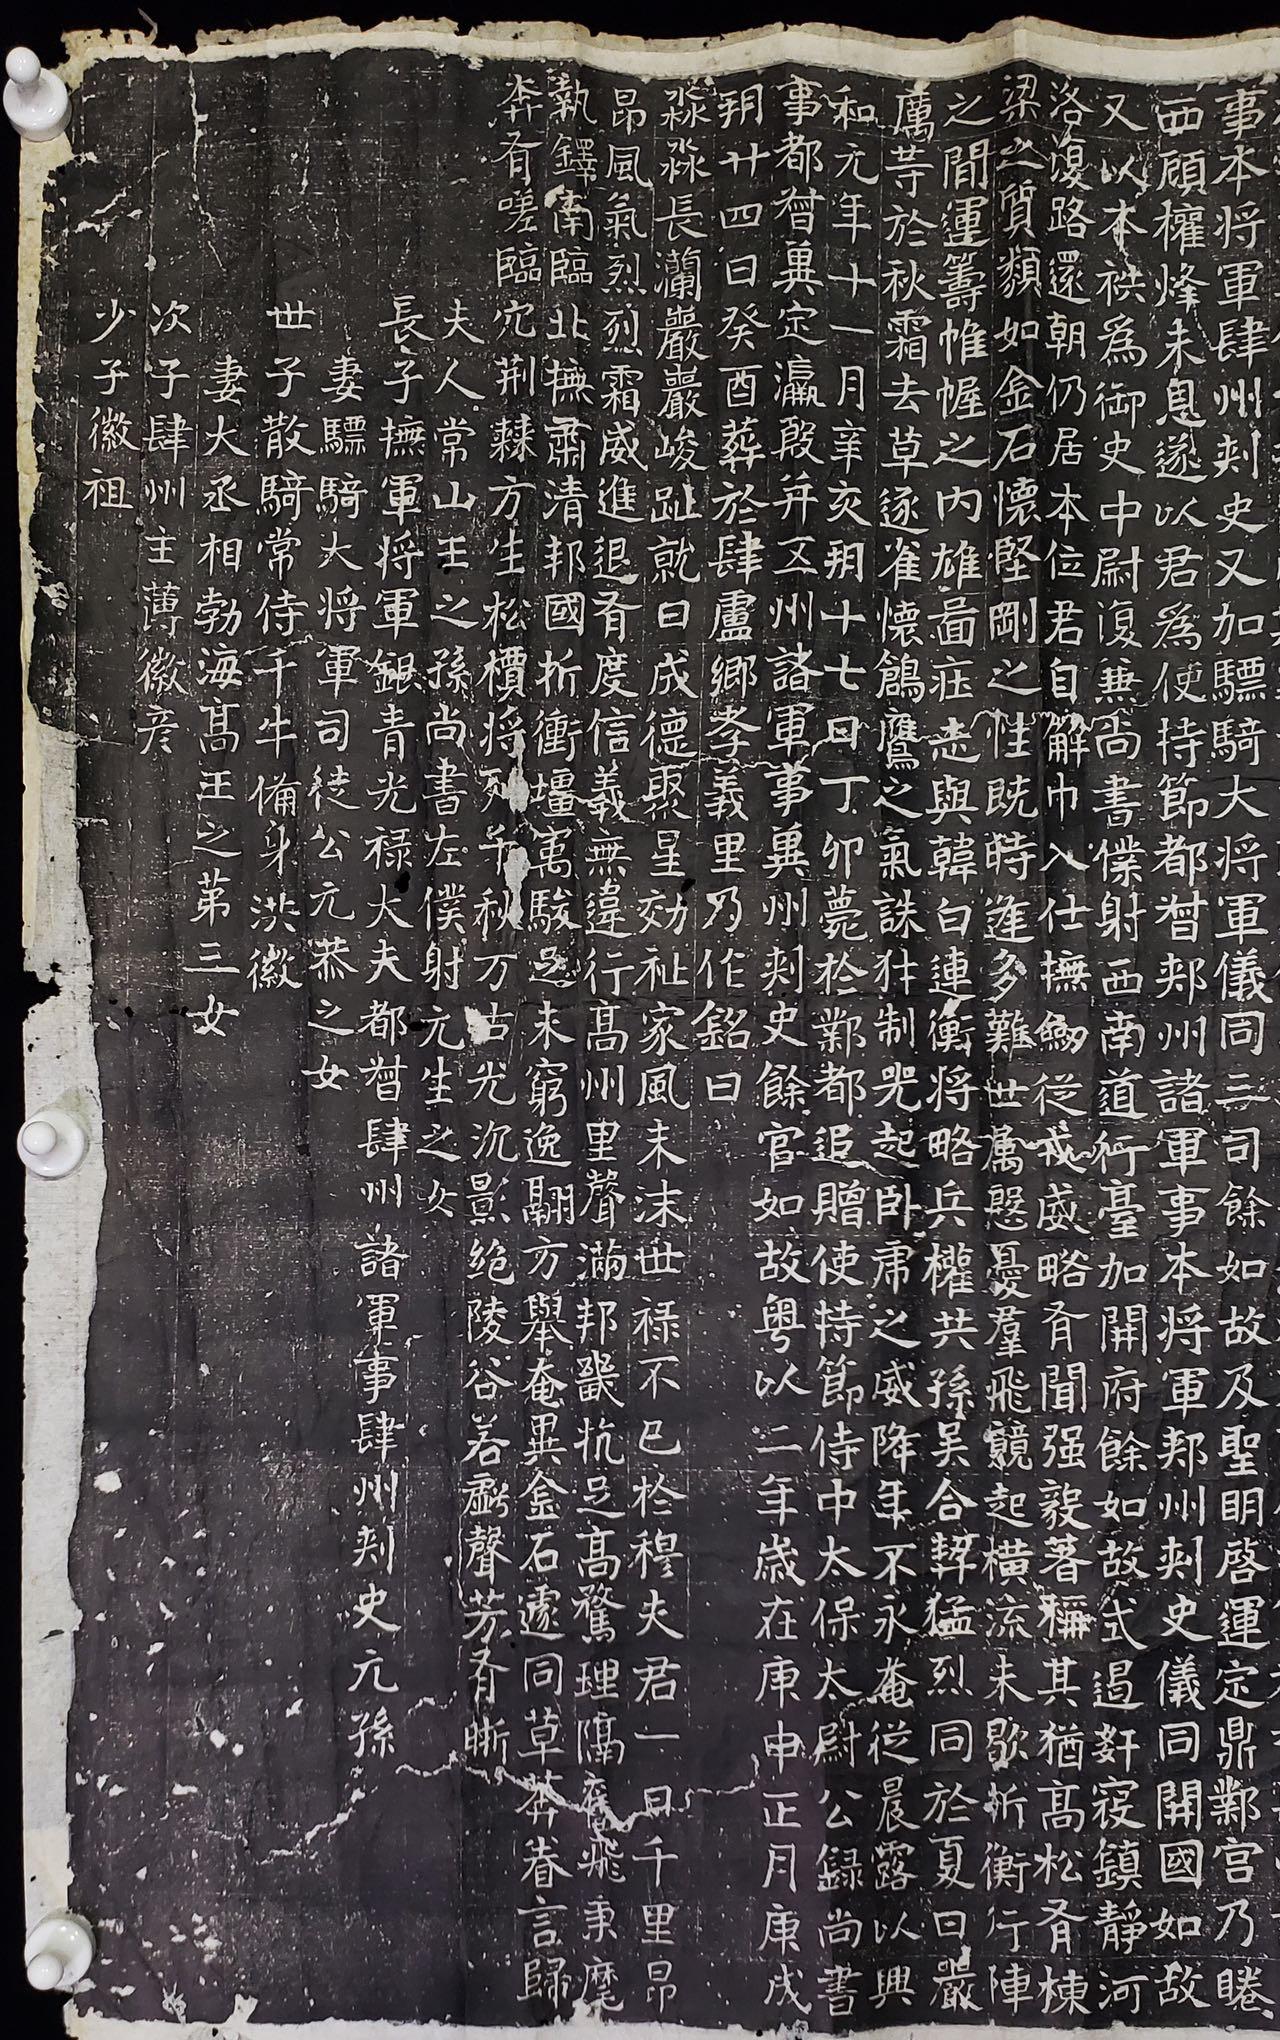 事本将軍肆州刾史又加驃騎大将軍儀同三司餘如故及聖明啓運定鼎鄴宫乃睠
西顧權烽未息遂以君為使持節都督郏州諸軍事本将軍郏州刾史儀同開國如故
又以本袟為御史中尉復兼尚書僕射西南道行臺加開府餘如故式遏姧寇鎮静河
洛復路還朝仍居本位君自解巾入仕撫劒従戎威略有聞强毅著稱其猶髙松有棟
梁之質類如金石懷堅剛之性既時逢多難世属慇憂羣飛競起横流未歇折衝行陣
之間運籌帷幄之内雄啚壮志與韓白連衡将略兵權共孫吴合契猛烈同於夏日嚴
厲等於秋霜去草逐雀懷鷂鷹之氣誅㹥制兕起卧虎之威降年不永奄従晨露以興
和元年十一月辛亥朔十七日丁卯薨於鄴都追贈使持節侍中太保太尉公録尚書
事都督兾定瀛殷并五州諸軍事兾州刾史餘官如故粤以二年歳在庚申正月庚戌
朔廿四日癸酉葬於肆盧鄉孝義里乃作銘曰
淼淼長瀾巖巖峻趾就日成德聚星効祉家風未沫世禄不已於穆夫君一日千里昂
昂風氣烈烈霜威進退有度信義無違行髙州里聲滿邦畿抗足髙騖理隔奮飛秉麾
執鐸南臨北撫肅清邦國折衝壃寓駿足未窮逸翮方舉奄異金石遽同草莽眷言歸
莽有嗟臨穴荆棘方生松檟将列千秋万古光沉景絶陵谷若虧聲芳有晣
夫人常山王之孫尚書左僕射元生之女
長子撫軍将軍銀青光禄大夫都督肆州諸軍事肆州刾史元孫
妻驃騎大将軍司徒公元恭之女
世子散騎常侍千牛備身洪徽
妻大丞相勃海髙王之第三女
次子肆州主薄徽彦
少子徽祖